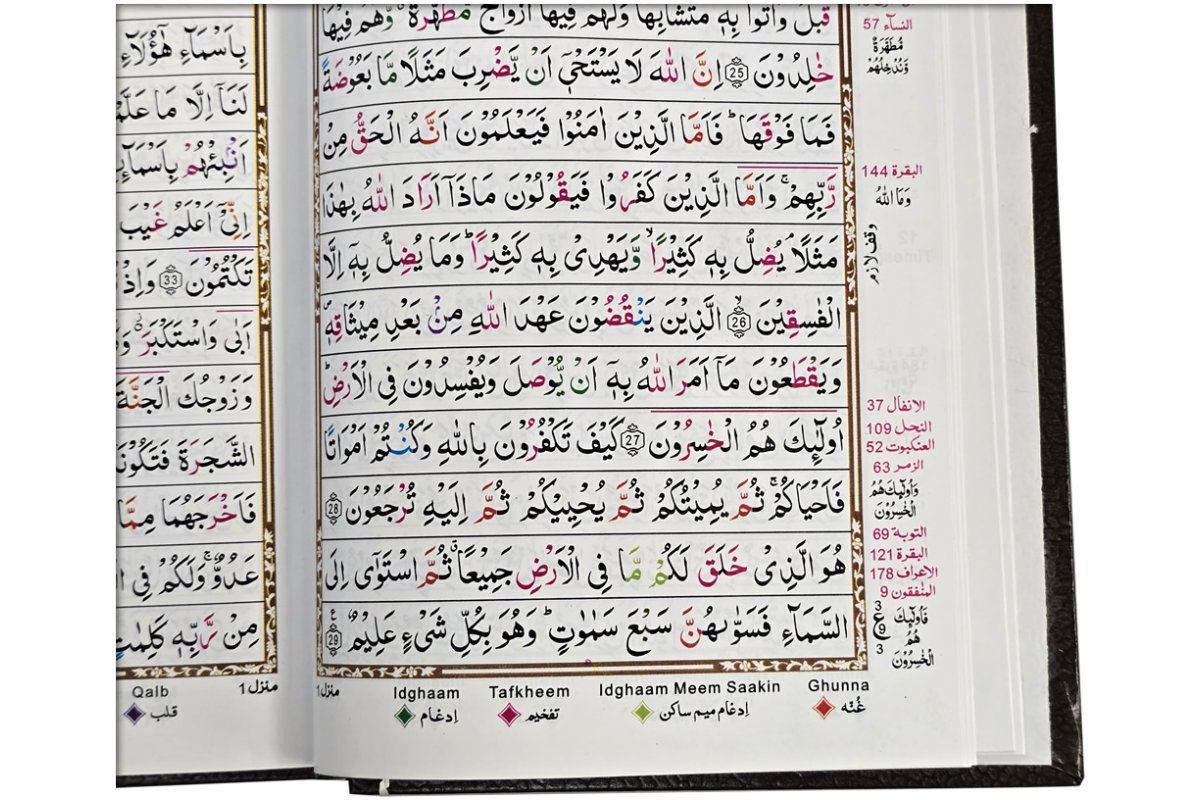 قَبْلُ وَاُتُوْا بِهٖ مُتَشَابِهًا وَلَهُمْ فِيْهَآ اَزْوَاجٌ مُّطَهَّرَةٌ وَّهُمْ فِيْهَا
خٰلِدُوْنَ 25 اِنَّ اللّٰهَ لَا يَسْتَحْيٖٓ اَنْ يَّضْرِبَ مَثَلًا مَّا بَعُوْضَةً
فَمَا فَوْقَهَا ؕ فَاَمَّا الَّذِيْنَ اٰمَنُوْا فَيَعْلَمُوْنَ اَنَّهُ الْحَقُّ مِنْ
رَّبِّهِمْ ۚ وَاَمَّا الَّذِيْنَ كَفَرُوْا فَيَقُوْلُوْنَ مَاذَآ اَرَادَ اللّٰهُ بِهٰذَا
مَثَلًا ۘ يُضِلُّ بِهٖ كَثِيْرًا ۙ وَّيَهْدِىْ بِهٖ كَثِيْرًا ؕ وَمَا يُضِلُّ بِهٖٓ اِلَّا
الْفٰسِقِيْنَ ۙ 26 الَّذِيْنَ يَنْقُضُوْنَ عَهْدَ اللّٰهِ مِنْۢ بَعْدِ مِيْثَاقِهٖ ۪
وَيَقْطَعُوْنَ مَآ اَمَرَ اللّٰهُ بِهٖٓ اَنْ يُّوْصَلَ وَيُفْسِدُوْنَ فِى الْاَرْضِ ؕ
اُولٰٓئِكَ هُمُ الْخٰسِرُوْنَ 27 كَيْفَ تَكْفُرُوْنَ بِاللّٰهِ وَكُنْتُمْ اَمْوَاتًا
فَاَحْيَاكُمْ ۚ ثُمَّ يُمِيْتُكُمْ ثُمَّ يُحْيِيْكُمْ ثُمَّ اِلَيْهِ تُرْجَعُوْنَ 28
هُوَ الَّذِىْ خَلَقَ لَكُمْ مَّا فِى الْاَرْضِ جَمِيْعًا ۗ ثُمَّ اسْتَوٰٓى اِلَى
السَّمَآءِ فَسَوّٰىهُنَّ سَبْعَ سَمٰوٰتٍ ؕ وَهُوَ بِكُلِّ شَىْءٍ عَلِيْمٌ 29
النسآء 57
مُّطَهَّرَةٌ
وَّنُدْخِلُهُمْ
البقرة 144
وَمَا اللّٰهُ
وقف لازم
الانفال 37
النحل 109
العنكبوت 52
الزمر 63
وَاُولٰٓئِكَ هُمُ
الْخٰسِرُوْنَ
التوبة 69
البقرة 121
الاعراف 178
المنٰفقون 9
فَاُولٰٓئِكَ
هُمُ
الْخٰسِرُوْنَ
3
ع
9
3
منزل 1
Idghaam
اِدغام
Tafkheem
تفخيم
Idghaam Meem Saakin
اِدغام ميم ساكن
Ghunna
غُنّه
بِاَسْمَآءِ هٰٓؤُلَآءِ
لَنَآ اِلَّا مَا عَلَّمْ
اَنْۢبِئْهُمْ بِاَسْمَآئِ
اِنِّىْٓ اَعْلَمُ غَيْبَ
تَكْتُمُوْنَ 33 وَاِذْ
اَبٰى وَاسْتَكْبَرَ
وَزَوْجُكَ الْجَنَّةَ
الشَّجَرَةَ فَتَكُوْنَا
فَاَخْرَجَهُمَا مِمَّا
عَدُوٌّ ۚ وَلَكُمْ فِى
مِنْ رَّبِّهٖ كَلِمٰتٍ
منزل 1
Qalb
قلب